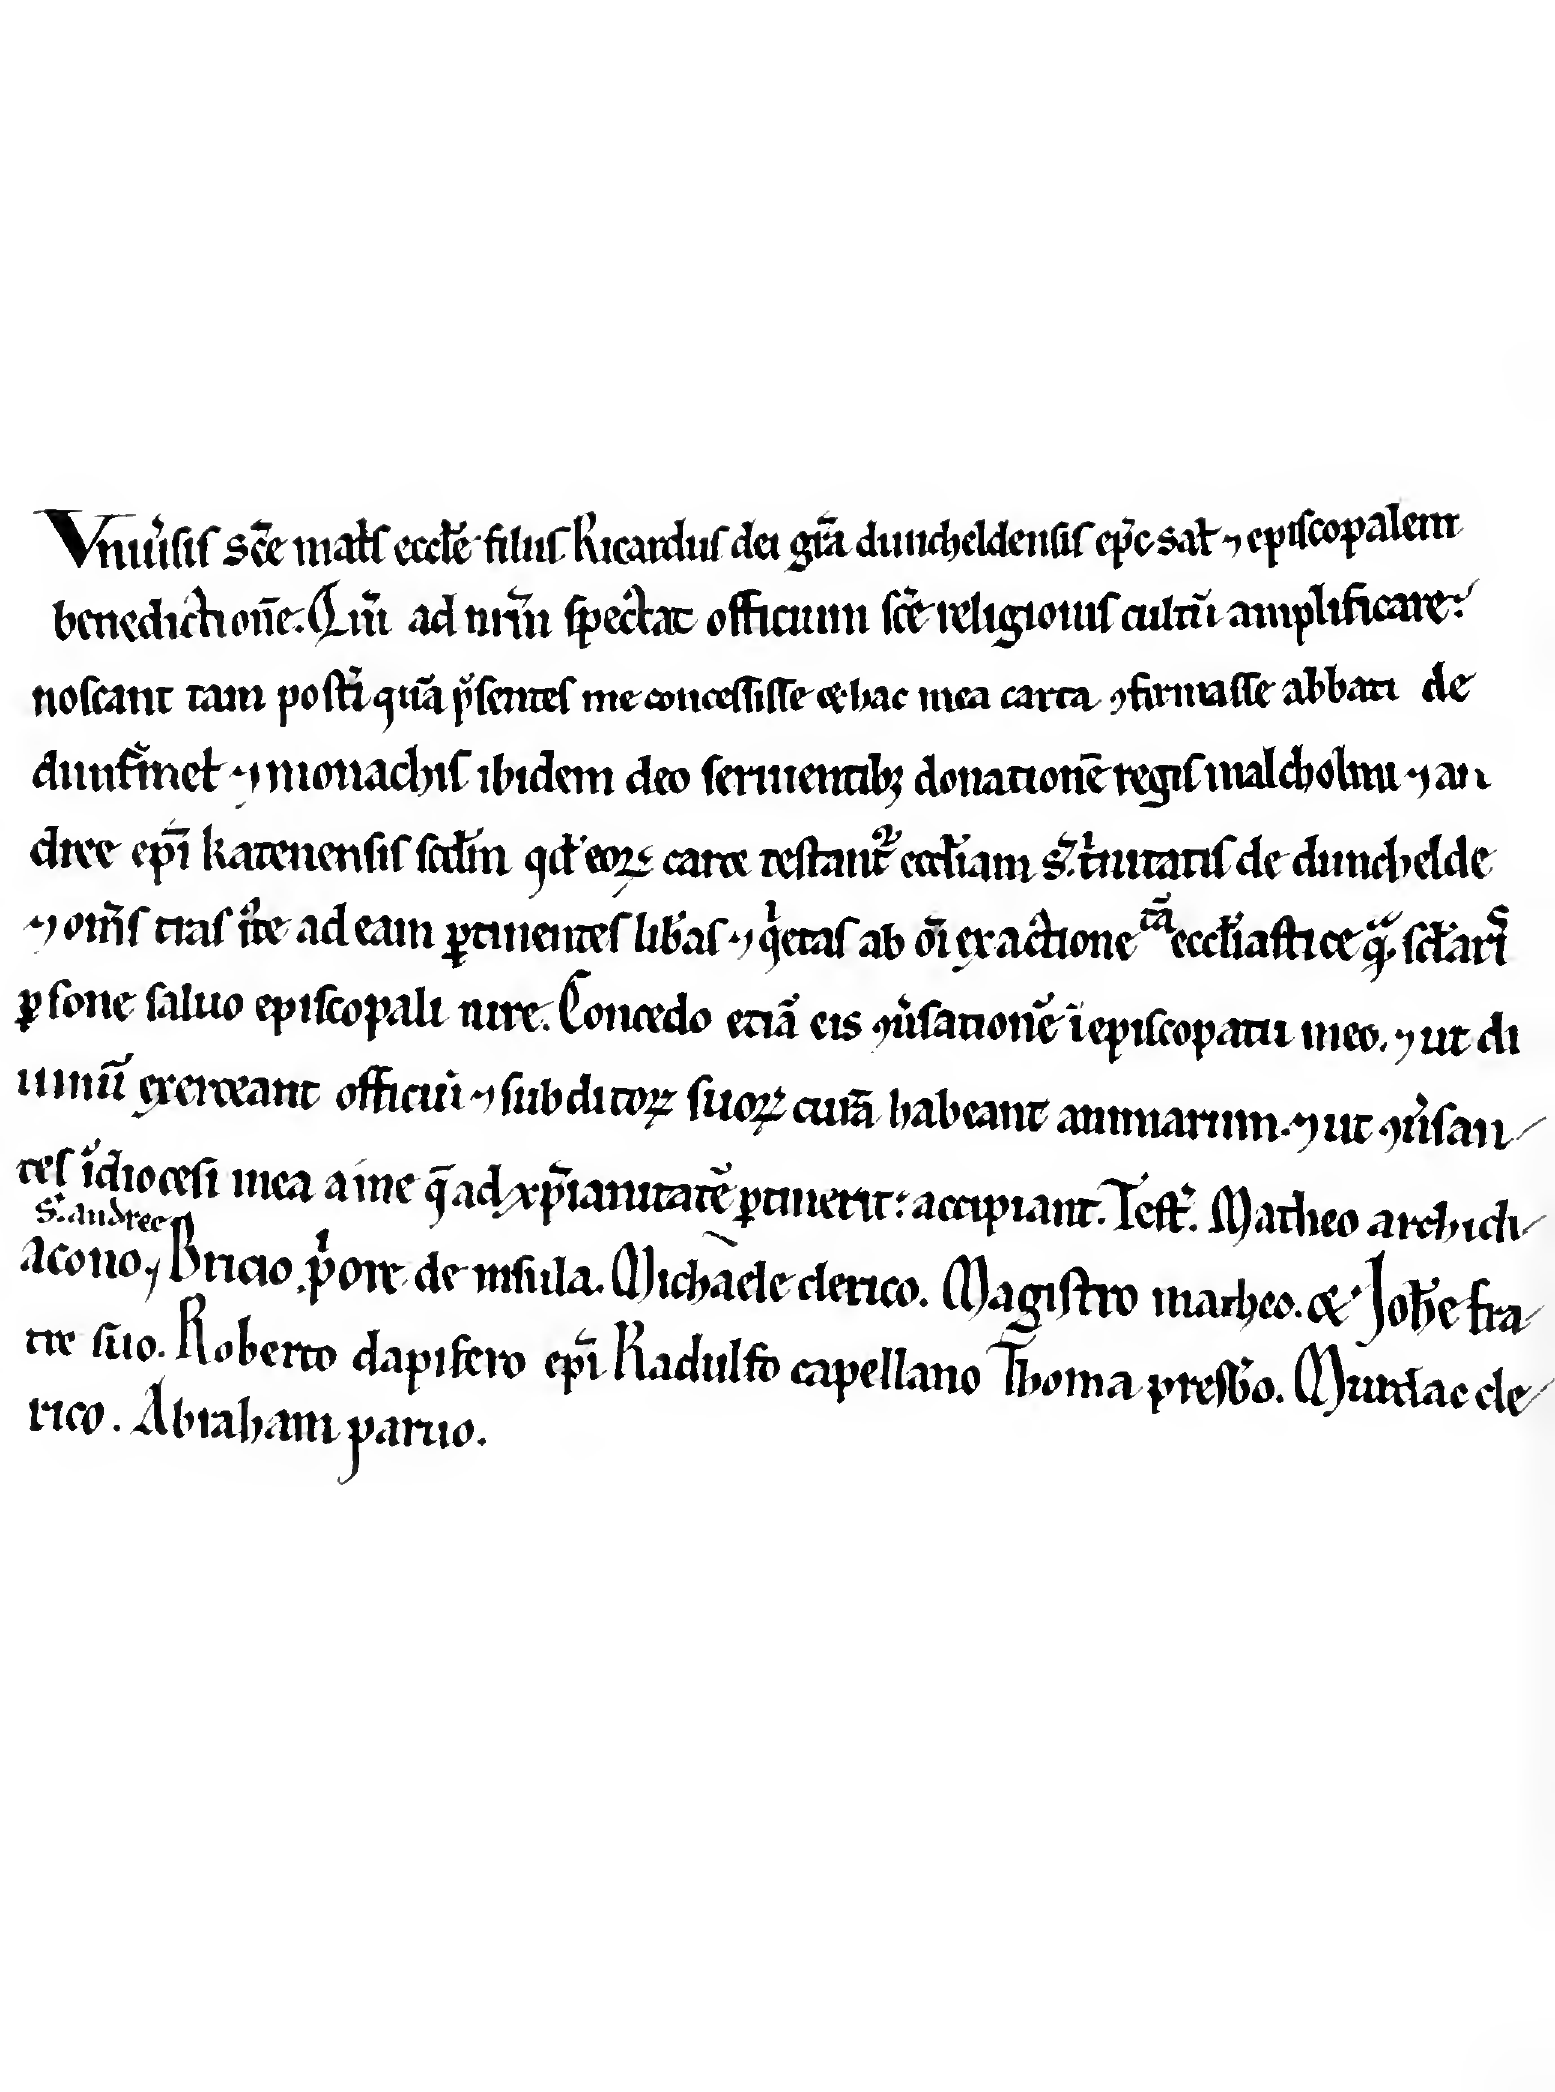 Vniu̓sis sc̄e mat̓s eccl̄e filiis Ricardus dei gr̄a duncheldensis ep̄c sal̄ ⁊ episcopalem
benedictionē. Qm̄ ad nr̄m spectat officium sc̄e religionis cultū amplificare:
noscant tam post̓i quā p̓sentes me concessisse & hac mea carta ꝯfirmasse abbati de
dunf̓mel̄ ⁊ monachis ibidem deo seruientibꝫ donationē regis malcholmi ⁊ an
dree ep̄i katenensis scd̄m qd̄ eoꝝ carte testant᷑ eccl̄iam s̄. t̓nitatis de dunchelde
⁊ om̄s t̓ras iu̓te ad eam ꝑtinentes lib̓as ⁊ qⁱetas ab om̄i exactione tā eccl̄iastice qᵃ̄. scl̄aris
ꝑsone saluo episcopali iure. Concedo etiā eis ꝯu̓sationē ī episcopatu meo. ⁊ ut di
uinū exerceant officiū ⁊ subditoꝝ suoꝝ curā habeant animarum. ⁊ ut ꝯu̓san
tes ī diocesi mea a me q̄ ad xp̄ianitatē ꝑtinerit: accipiant. Test̓. Matheo archidi
s̄. andree
acono ⁊ Bricio pⁱore de insula. Michaele clerico. Magistro matheo. & Joh̄e fra
tre suo. Roberto dapifero ep̄i Radulfo capellano Thoma presb̓o. Murdac cle
rico. Abraham paruo.